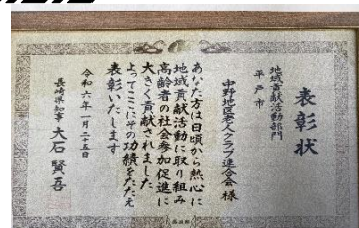 表彰状
地域貢献活動部門
平戸市
中野地区老人クラブ連合会 様
あなた方は日頃から熱心に
地域貢献活動に取り組み
高齢者の社会参加促進に
大きく貢献されました
よってここにその功績をたたえ
表彰いたします
令和六年一月二十五日
長崎県知事 大石賢吾